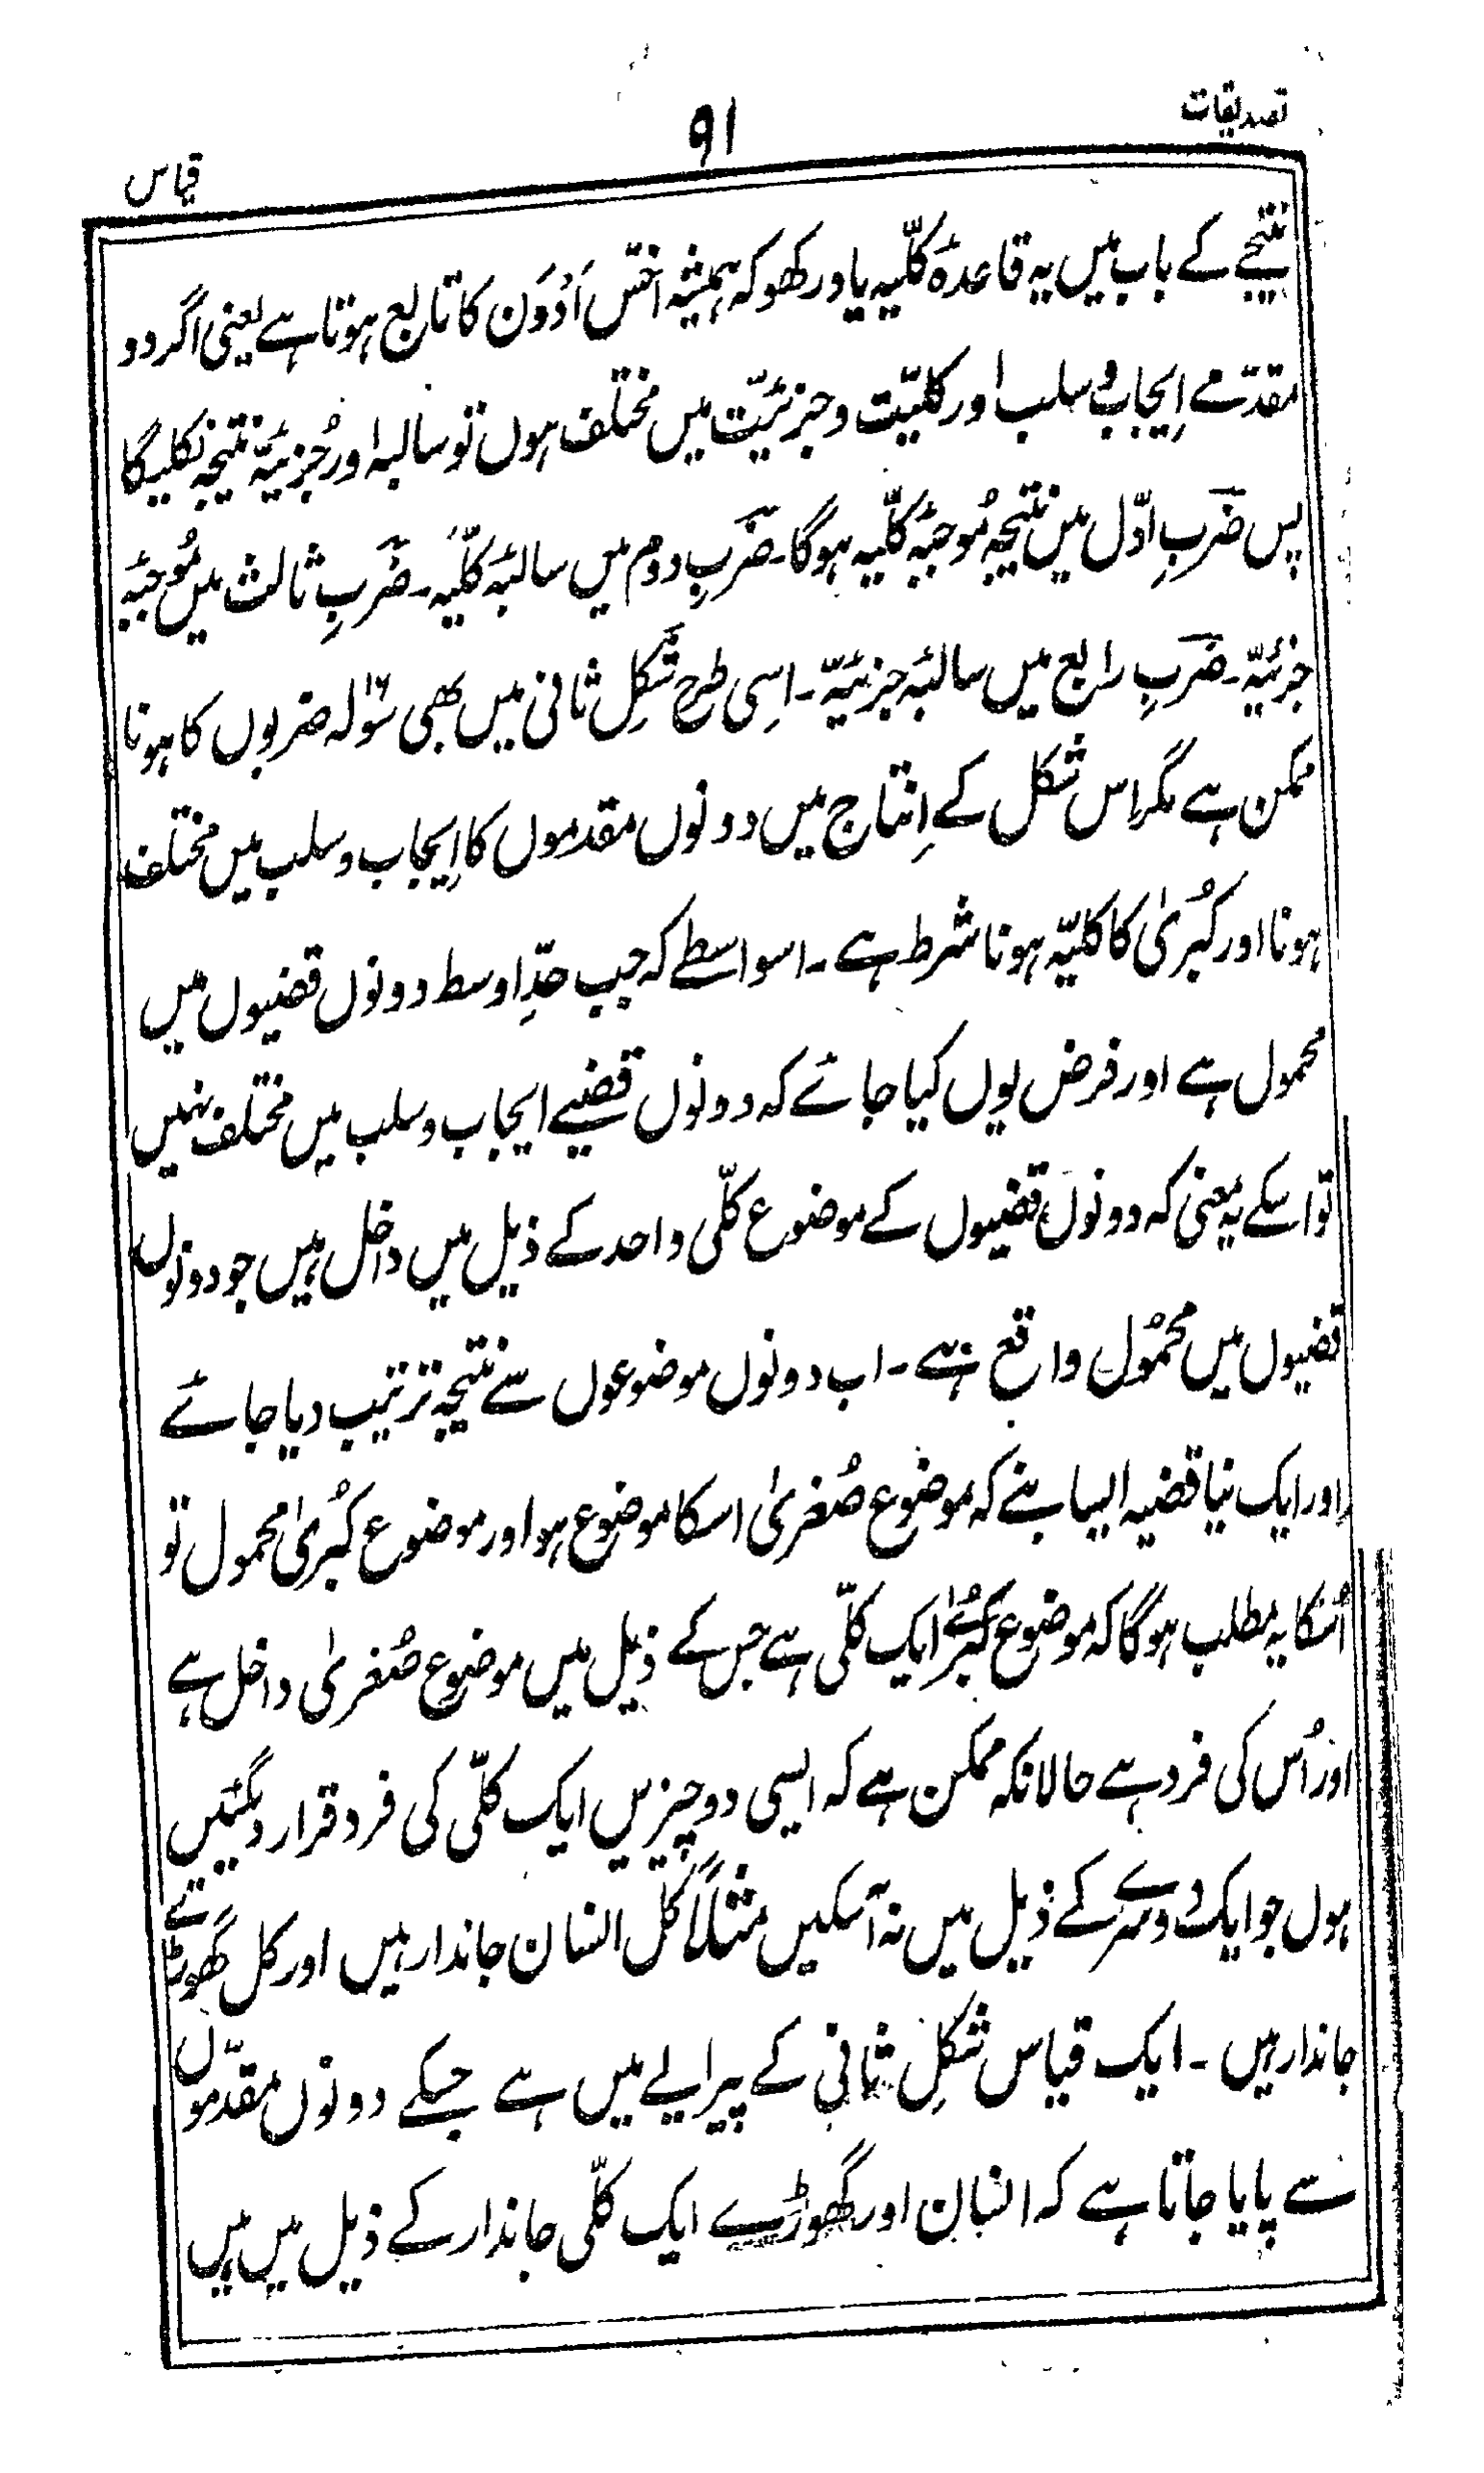 تصدیقات
۹۱
قیاس
نتیجے کے باب میں یہ قاعدۂ کلّیہ یاد رکھو کہ ہمیشہ اخسّ اَدْوَن کا تابع ہوتا ہے یعنی اگر دو
مقدّمے اِیجاب و سلب اور کلیّت و جزئیّت میں مختلف ہوں تو سالبہ اور جُزئیّہ نتیجہ نکلیگا
پس ضَربِ اوّل میں نتیجہ مُوجبۂ کلّیہ ہوگا۔ ضَربِ دوم میں سالبۂ کلّیہ۔ ضَربِ ثالث میں مُوجبۂ
جزئیّہ۔ ضَربِ رابع میں سالبۂ جزئیّہ۔ اسِی طرح شَکلِ ثانی میں بھی سولہ ضربوں کا ہونا
ممکن ہے مگر اس شکل کے اِنتاج میں دونوں مقدموں کا اِیجاب و سلب میں مختلف
ہونا اور کُبریٰ کا کلیّہ ہونا شرط ہے۔ اسواسطے کہ جب حدِّ اوسط دونوں قضیوں میں
محمول ہے اور فرض یوں کیا جائے کہ دونوں قضیے ایجاب و سلب میں مختلف نہیں
تو اسکے یہ معنی کہ دونوں قضیوں کے موضوع کلّی واحد کے ذیل میں داخل ہیں جو دونوں
قضیوں میں محمُول واقع ہے۔ اب دونوں موضوعوں سے نتیجہ ترتیب دیا جائے
اور ایک نیا قضیہ ایسا بنے کہ موضوع صُغریٰ اسکا موضوع ہو اور موضوع کُبریٰ محمول تو
اُسکا یہ مطلب ہوگا کہ موضوع کُبرےٰ ایک کلّی ہے جس کے ذیل میں موضوع صُغریٰ داخل ہے
اور اُس کی فرد ہے حالانکہ ممکن ہے کہ ایسی دو چیزیں ایک کلّی کی فرد قرار دیگئیں
ہوں جو ایک دوسرے کے ذیل میں نہ آسکیں مثلاً کُل انسان جاندار ہیں اور کل گھوڑے
جاندار ہیں۔ ایک قیاس شکلِ ثانی کے پیرایے میں ہے جسکے دونوں مقدّموں
سے پایا جاتا ہے کہ انسان اور گھوڑے ایک کلّی جاندار کے ذیل میں ہیں